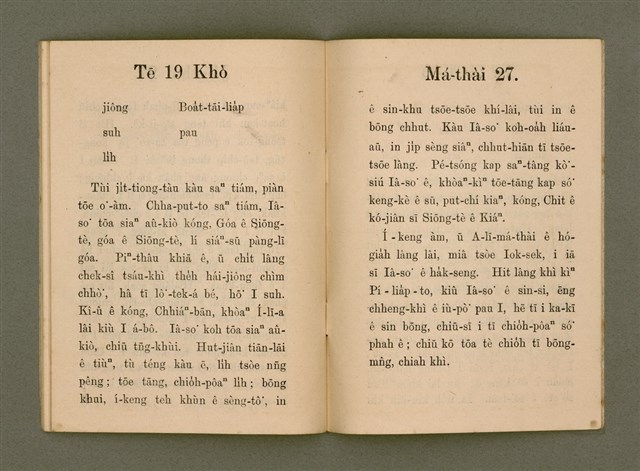 Tē 19 Khò
jiông Boa̍t-tāi-lia̍p
suh pau
li̍h
Tùi ji̍t-tiong-tàu kàu saⁿ tiám, piàn
tōe o͘-àm. Chha-put-to saⁿ tiám, Ià-
so͘ tōa siaⁿ aû-kiò kóng, Góa ê Siōng-
tè, góa ê Siōng-tè, lí siáⁿ-sū pàng-lī
góa. Pīⁿ-thâu khiā ê, ū chi̍t lâng
chek-sî tsáu-khì the̍h hái-jiông chìm
chhò͘, hâ tī lô͘-tek-á bé, hō͘ I suh.
Kî-û ê kóng, Chhiáⁿ-bān, khòaⁿ Í-lī-a
lâi kiù I á-bô. Ià-so͘ koh tōa siaⁿ aû-
kiò, chiū tn̄g-khùi. Hut-jiân tiān-lāi
ê tiùⁿ, tù téng kàu ē, li̍h tsòe nn̄g
pêng; tōe tāng, chio̍h-pôaⁿ li̍h; bōng
khui, í-keng teh khùn ê sèng-tô͘, in
Má-thài 27.
ê sin-khu tsōe-tsōe khí-lâi, tùi in ê
bōng chhut. Kàu Ià-so͘ koh-oa̍h liáu-
aū, in ji̍p sèng siâⁿ, chhut-hiān tī tsōe-
tsōe lâng. Pé-tsóng kap saⁿ-tâng kò͘-
siú Ià-so͘ ê, khòaⁿ-kìⁿ tōe-tāng kap só͘
keng-kè ê sū, put-chí kiaⁿ, kóng, Chit ê
kó-jiân sī Siōng-tè ê Kiáⁿ.
Í-keng àm, ū A-lī-má-thài ê hó-
gia̍h lâng lâi, miâ tsòe Iok-sek, i iā
sī Ià-so͘ ê ha̍k-seng. Hit lâng khì kìⁿ
Pí-lia̍p-to, kiû Ià-so͘ ê sin-si, ēng
chheng-khì ê iù-pò͘ pau I, hē tī i ka-kī
ê sin bōng, chiū-sī i tī chio̍h-pôaⁿ só͘
phah ê; chiū kō tōa tè chio̍h tī bōng-
mn̂g, chiah khì.